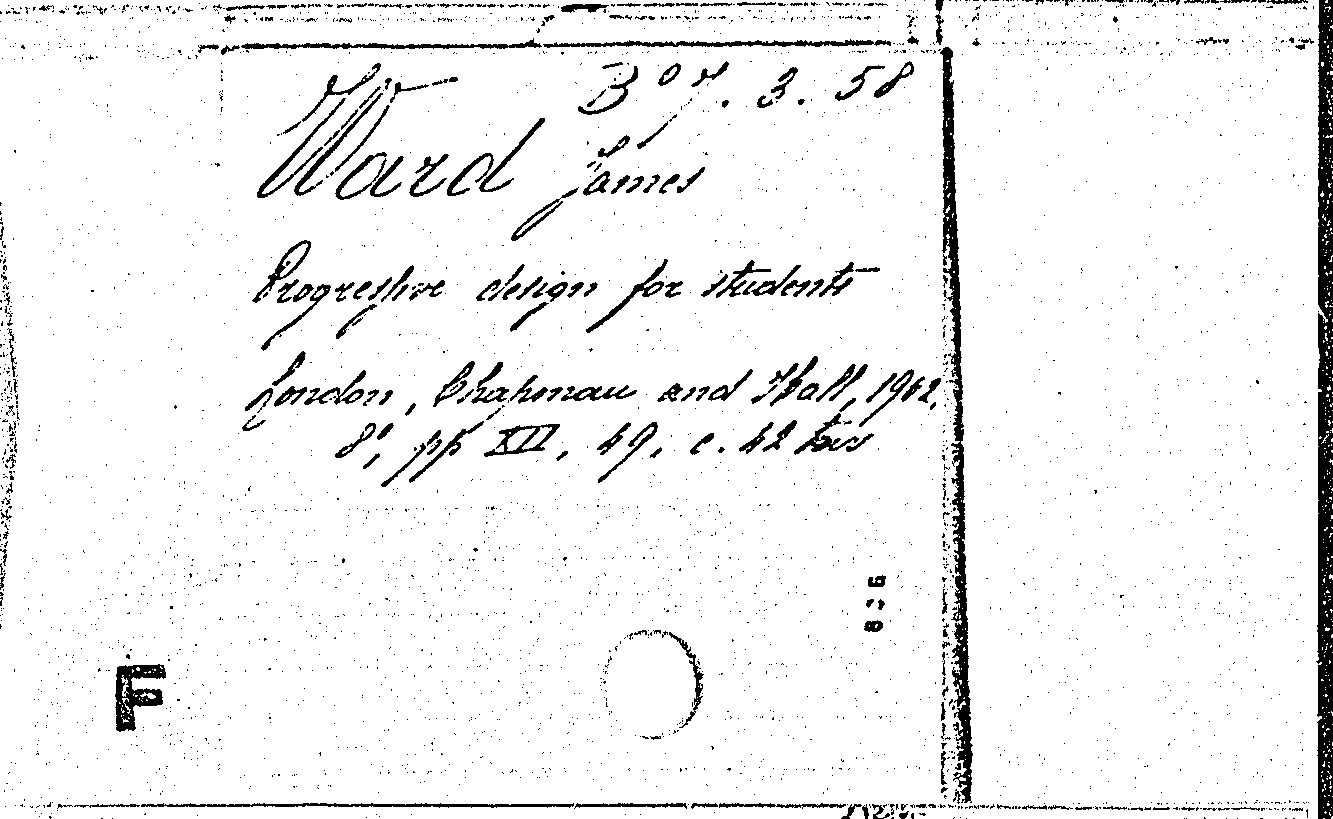 B° 7. 3. 58
Ward James
Progressive design for students
London, Chapman and Hall, 1902.
8°, pp XII, 49, c. 42 tav
F